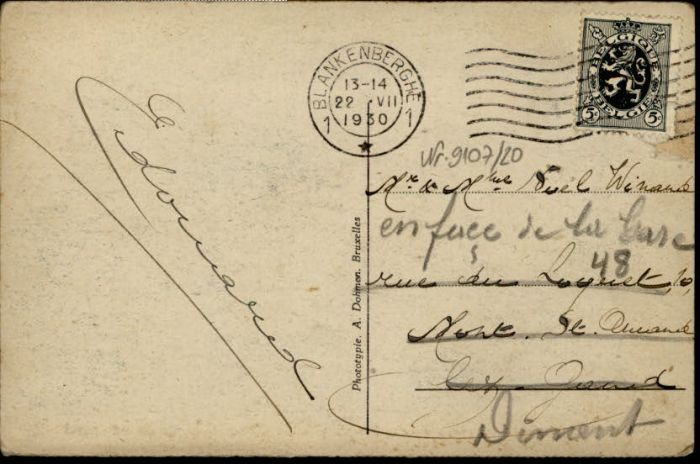 Edouard
BLANKENBERGHE
13-14
22 VII
1930
1 1
BELGIQUE
BELGIË
5c 5c
Nr. 9107/20
Mr & Mme Noël Winand
en face de la Gare
48
rue du Loquet 10,
Mont. St Amand
Gand
Dinant
Phototypie. A. Dohmen. Bruxelles